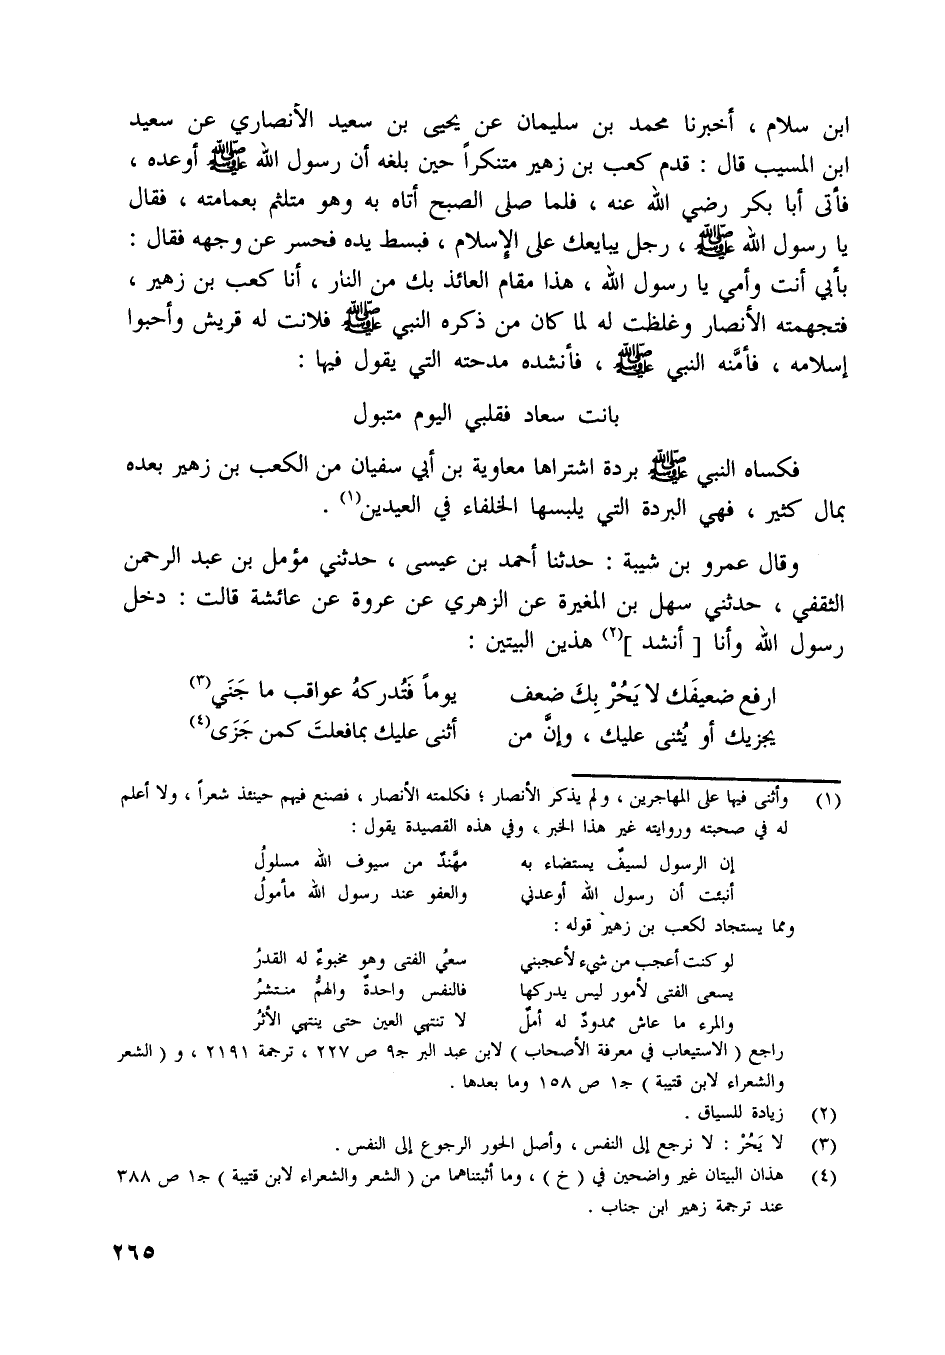 ابن سلام ، أخبرنا محمد بن سليمان عن يحيى بن سعيد الأنصاري عن سعيد
ابن المسيب قال : قدم كعب بن زهير متنكراً حين بلغه أن رسول الله ﷺ أوعده ،
فأتى أبا بكر رضي الله عنه ، فلما صلى الصبح أتاه به وهو متلثم بعمامته ، فقال
يا رسول الله ﷺ ، رجل يبايعك على الإسلام ، فبسط يده فحسر عن وجهه فقال :
بأبي أنت وأمي يا رسول الله ، هذا مقام العائذ بك من النار ، أنا كعب بن زهير ،
فتجهمته الأنصار وغلظت له لما كان من ذكره النبي ﷺ فلانت له قريش وأحبوا
إسلامه ، فأمَّنه النبي ﷺ ، فأنشده مدحته التي يقول فيها :
بانت سعاد فقلبي اليوم متبول
فكساه النبي ﷺ بردة اشتراها معاوية بن أبي سفيان من الكعب بن زهير بعده
بمال كثير ، فهي البردة التي يلبسها الخلفاء في العيدين(١) .
وقال عمرو بن شيبة : حدثنا أحمد بن عيسى ، حدثني مؤمل بن عبد الرحمن
الثقفي ، حدثني سهل بن المغيرة عن الزهري عن عروة عن عائشة قالت : دخل
رسول الله وأنا [ أنشد ](٢) هذين البيتين :
ارفع ضعيفَك لا يَحُرْ بِكَ ضعف يوماً فَتُدركهُ عواقب ما جَنَي(٣)
يجزيك أو يُثنى عليك ، وإنَّ من أثنى عليك بمافعلتَ كمن جَزَى(٤)
(١) وأثنى فيها على المهاجرين ، ولم يذكر الأنصار ؛ فكلمته الأنصار ، فصنع فيهم حينئذ شعراً ، ولا أعلم
له في صحبته وروايته غير هذا الخبر ، وفي هذه القصيدة يقول :
إن الرسول لسيفٌ يستضاء به مهَّندٌ من سيوف الله مسلولُ
أنبئت أن رسول الله أوعدني والعفو عند رسول الله مأمولُ
ومما يستجاد لكعب بن زهير قوله :
لو كنت أعجب من شيء لأعجبني سعيُ الفتى وهو مخبوءٌ له القدرُ
يسعى الفتى لأمور ليس يدركها فالنفس واحدةٌ والهمُّ منتشرُ
والمرء ما عاش ممدودٌ له أملٌ لا تنتهي العين حتى ينتهي الأثرُ
راجع ( الاستيعاب في معرفة الأصحاب ) لابن عبد البر جـ٩ ص ٢٢٧ ، ترجمة ٢١٩١ ، و ( الشعر
والشعراء لابن قتيبة ) جـ١ ص ١٥٨ وما بعدها .
(٢) زيادة للسياق .
(٣) لا يَحُرْ : لا نرجع إلى النفس ، وأصل الحور الرجوع إلى النفس .
(٤) هذان البيتان غير واضحين في ( خ ) ، وما أثبتناهما من ( الشعر والشعراء لابن قتيبة ) جـ١ ص ٣٨٨
عند ترجمة زهير ابن جناب .
٢٦٥